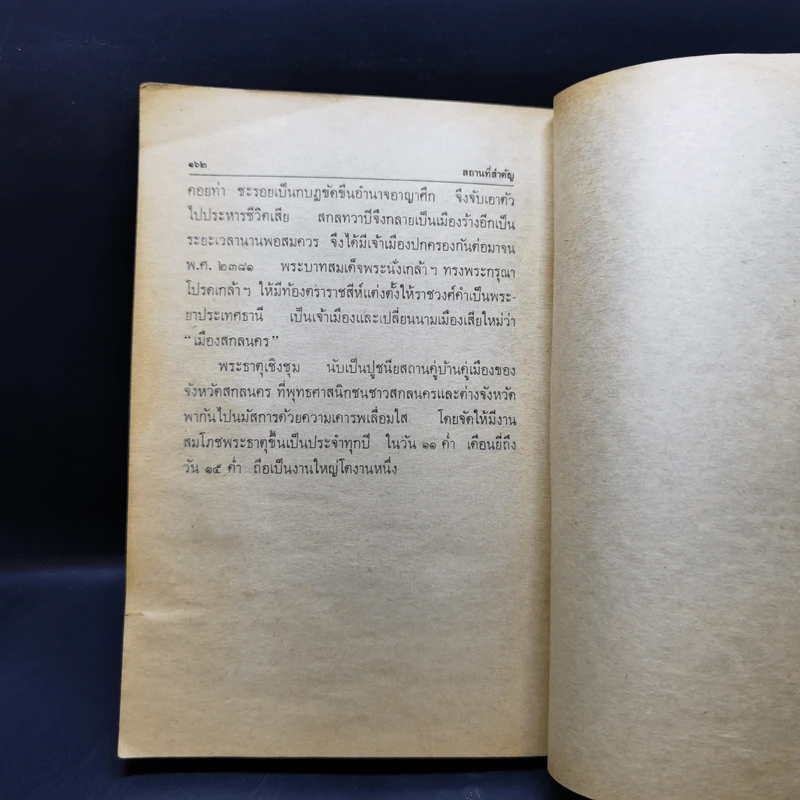 ๑๖๒
สถานที่สำคัญ
คอยท่า ชะรอยเป็นกบฏขัดขืนอำนาจอาญาศึก จึงจับเอาตัว
ไปประหารชีวิตเสีย สกลทวาปีจึงกลายเป็นเมืองร้างอีกเป็น
ระยะเวลานานพอสมควร จึงได้มีเจ้าเมืองปกครองกันต่อมาจน
พ.ศ. ๒๓๘๑ พระบาทสมเด็จพระนั่งเกล้าฯ ทรงพระกรุณา
โปรดเกล้าฯ ให้มีท้องตราราชสีห์แต่งตั้งให้ราชวงศ์คำเป็นพระ-
ยาประเทศธานี เป็นเจ้าเมืองและเปลี่ยนนามเมืองเสียใหม่ว่า
“เมืองสกลนคร”
พระธาตุเชิงชุม นับเป็นปูชนียสถานคู่บ้านคู่เมืองของ
จังหวัดสกลนคร ที่พุทธศาสนิกชนชาวสกลนครและต่างจังหวัด
พากันไปนมัสการด้วยความเคารพเลื่อมใส โดยจัดให้มีงาน
สมโภชพระธาตุขึ้นเป็นประจำทุกปี ในวัน ๑๑ ค่ำ เดือนยี่ถึง
วัน ๑๕ ค่ำ ถือเป็นงานใหญ่โตงานหนึ่ง